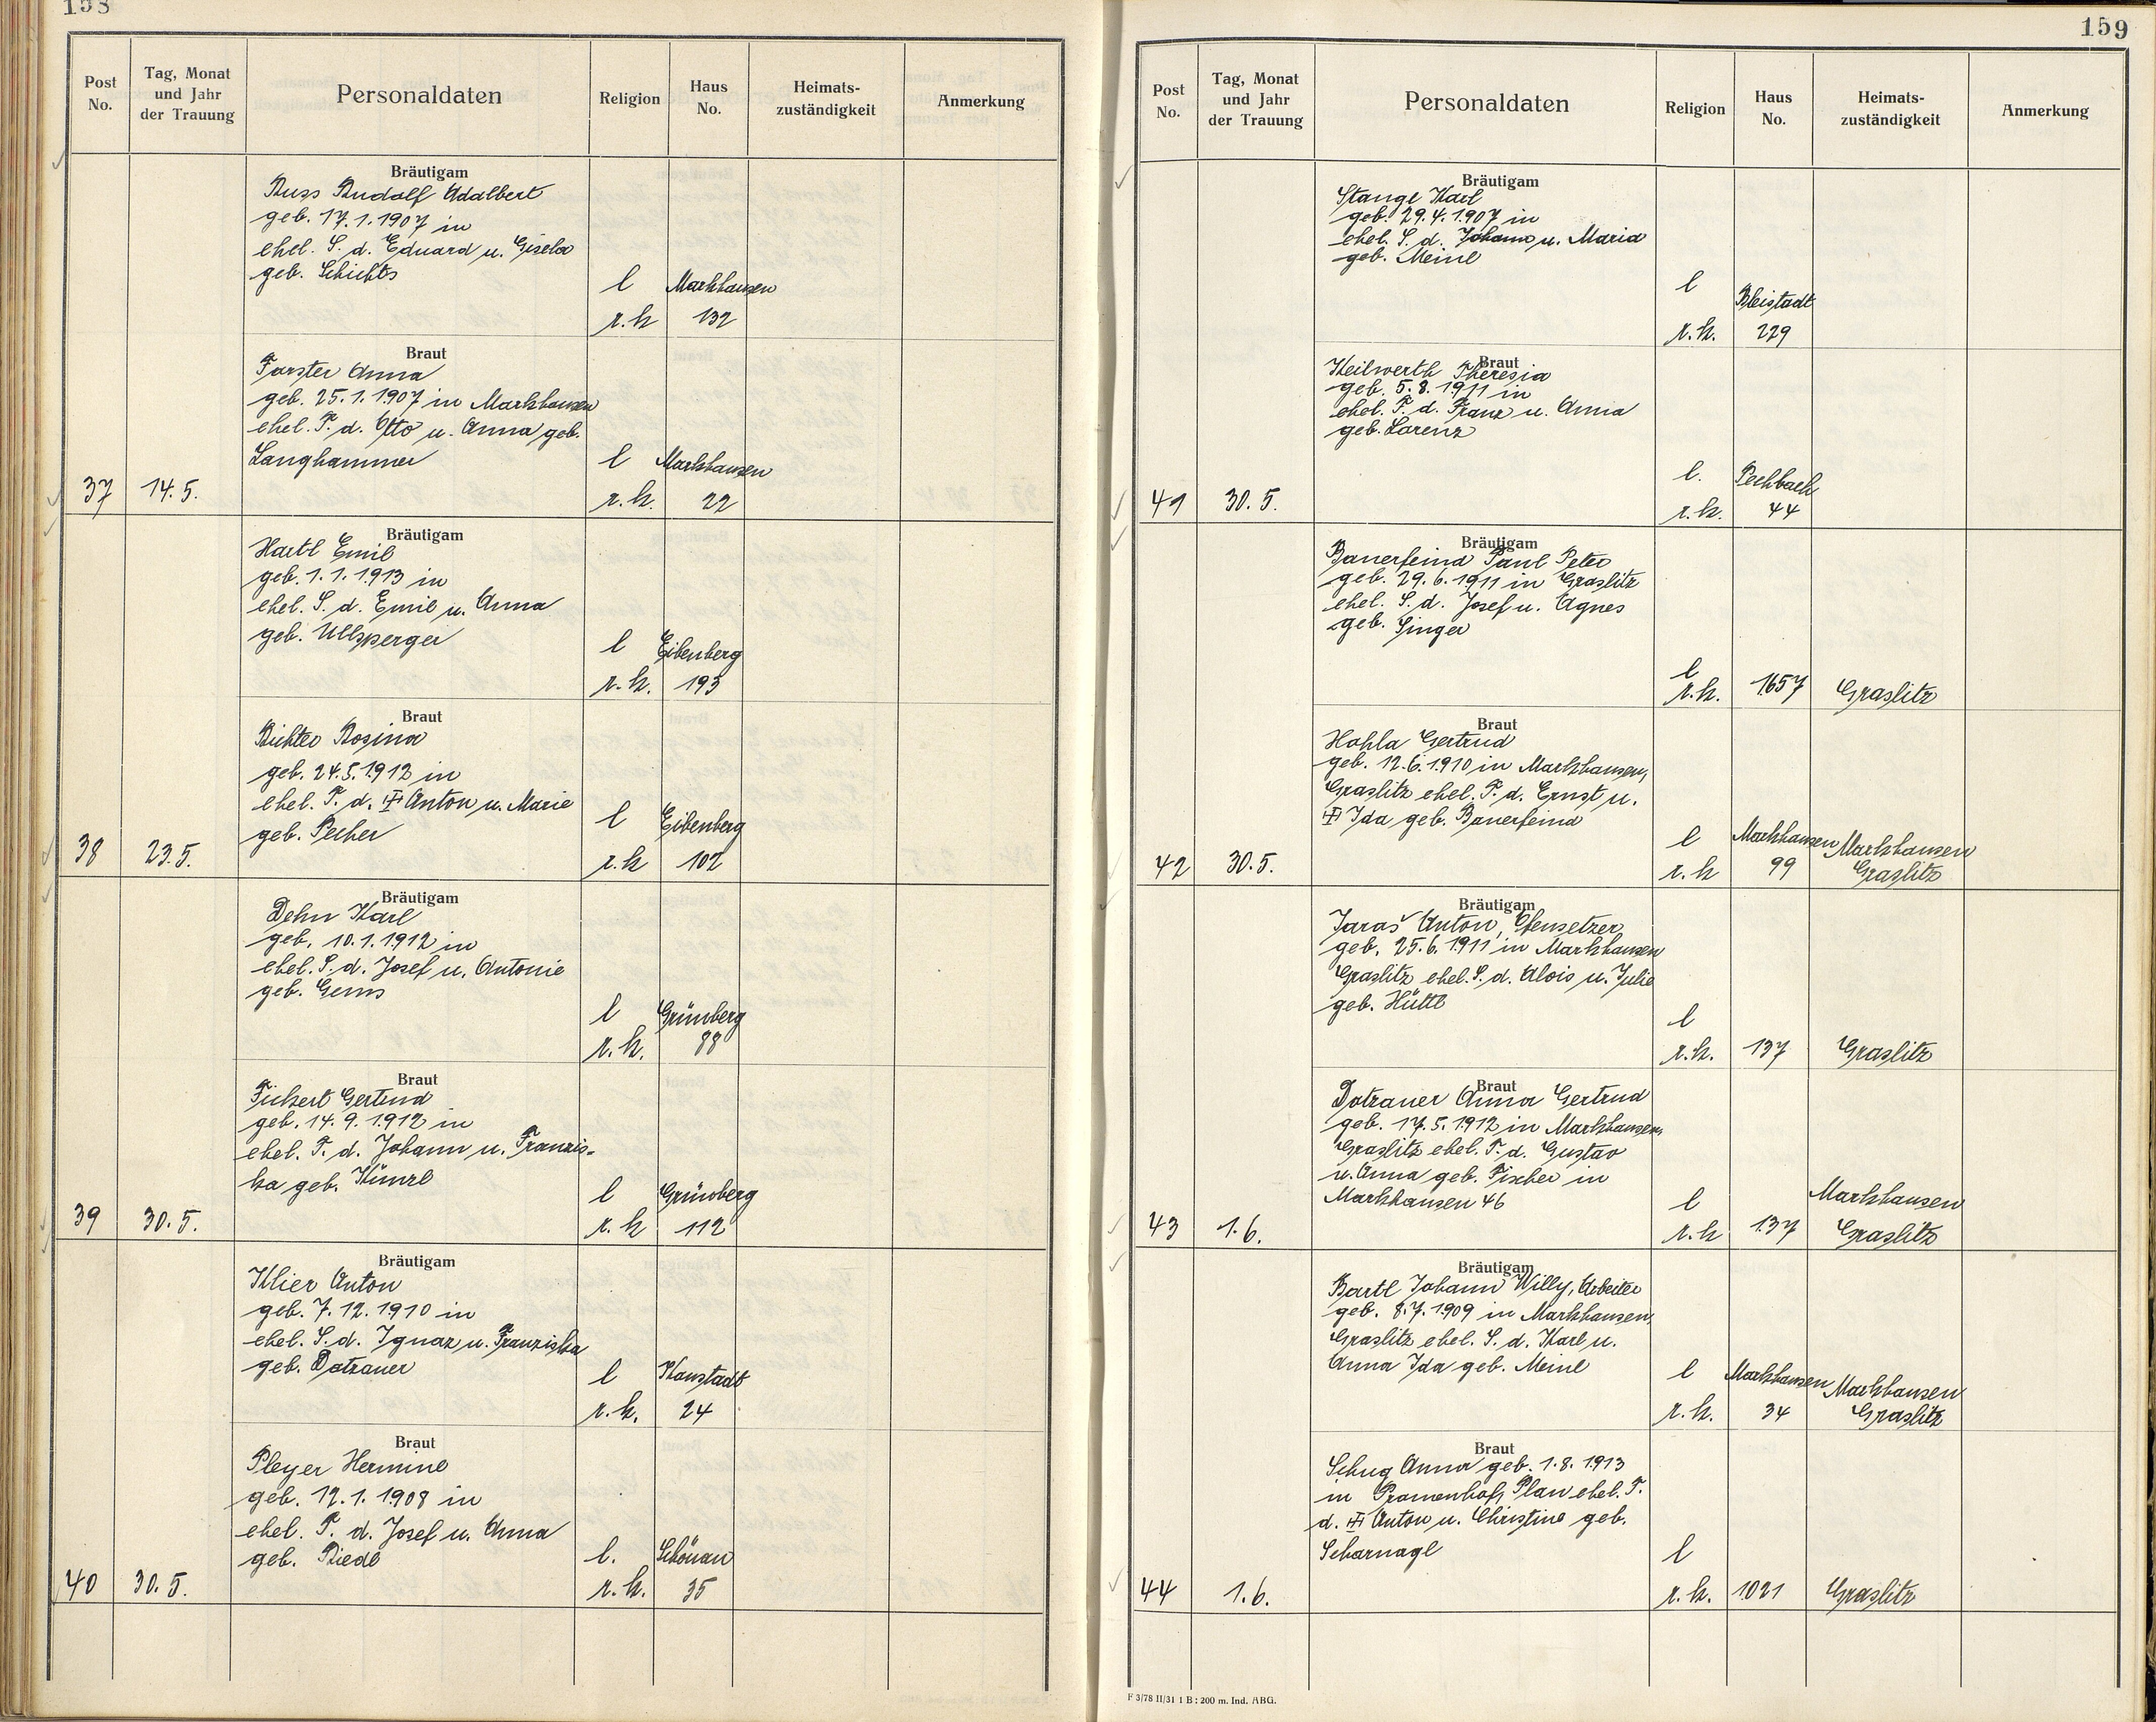 158
Post No.
Tag, Monat und Jahr der Trauung
Personaldaten
Religion
Haus No.
Heimats-zuständigkeit
Anmerkung
Bräutigam
Russ Rudolf Adalbert
geb. 17.1.1907 in
ehel. S. d. Eduard u. Gisela
geb. Schichts
l Markhausen
r.k 132
Braut
Forster Anna
geb. 25.1.1907 in Markhausen
ehel. T. d. Otto u. Anna geb.
Langhammer
l Markhausen
37 14.5. r.k. 22
Bräutigam
Hartl Emil
geb. 1.1.1913 in
ehel. S. d. Emil u. Anna
geb. Ullsperger
l Eibenberg
r.k. 193
Braut
Richter Rosina
geb. 24.5.1912 in
ehel. T. d. Anton u. Marie
geb. Pecher
l Eibenberg
38 23.5. r.k 102
Bräutigam
Dehn Karl
geb. 10.1.1912 in
ehel. S. d. Josef u. Antonie
geb.
l Grünberg
r.k. 88
Braut
Fickert Gertrud
geb. 14.9.1912 in
ehel. T. d. Johann u. Franzis-
ka geb. Künzl
l Grünberg
39 30.5. r.k 112
Bräutigam
Klier Anton
geb. 7.12.1910 in
ehel. S. d. Ignaz u. Franziska
geb. Dotzauer
l Konstadt
r.k. 24
Braut
Pleyer Hermine
geb. 12.1.1908 in
ehel. T. d. Josef u. Anna
geb. Riedl
l. Schönau
40 30.5. r.k. 35
159
Post No.
Tag, Monat und Jahr der Trauung
Personaldaten
Religion
Haus No.
Heimats-zuständigkeit
Anmerkung
Bräutigam
Stangl Karl
geb. 29.4.1907 in
ehel. S. d. Johann u. Maria
geb. Meinl
l Bleistadt
r.k. 229
Braut
Keilwerth Theresia
geb. 5.8.1911 in
ehel. T. d. Franz u. Anna
geb. Lorenz
l. Pechbach
41 30.5. r.k. 44
Bräutigam
Bauerfeind Paul Peter
geb. 29.6.1911 in Graslitz
ehel. S. d. Josef u. Agnes
geb. Singer
l
r.k. 1657 Graslitz
Braut
Hohla Gertrud
geb. 12.6.1910 in Markhausen,
Graslitz ehel. T. d. Ernst u.
Ida geb. Bauerfeind
l Markhausen Markhausen
42 30.5. r.k 99 Graslitz
Bräutigam
Jaraš Anton, Ofensetzer
geb. 25.6.1911 in Markhausen
Graslitz ehel. S. d. Alois u. Julie
geb. Hüttl
l
r.k. 137 Graslitz
Braut
Dotzauer Anna Gertrud
geb. 17.5.1912 in Markhausen,
Graslitz ehel. T. d. Gustav
u. Anna geb. Fischer in
Markhausen 46
l Markhausen
43 1.6. r.k 137 Graslitz
Bräutigam
Bartl Johann Willy, Arbeiter
geb. 8.7.1909 in Markhausen,
Graslitz ehel. S. d. Karl u.
Anna Ida geb. Meinl
l Markhausen Markhausen
r.k. 34 Graslitz
Braut
Schug Anna geb. 1.8.1913
in Promenhof, Plan ehel. T.
d. Anton u. Christine geb.
Scharnagl
l
44 1.6. r.k. 1021 Graslitz
F 3/78 II/31 1 B : 200 m. Ind. ABG.